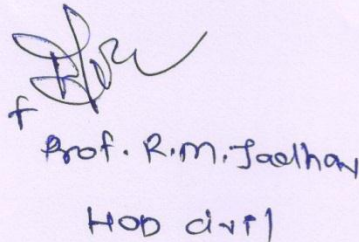 Prof. R.M. Jadhav
HOD civil